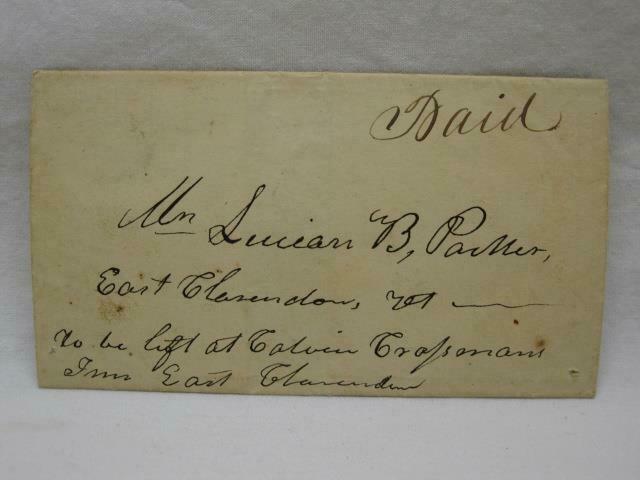 Paid
Mr Lucian B, Parker,
East Clarendon, Vt
to be left at Calvin Crossmans
Inn East Clarendon